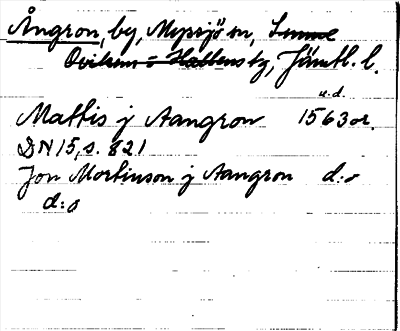 Ångron, by, Myssjö sn,
Ovikens o Hallens tg, Jämtl. l.
u.d.
Mattis j Aangron 1563 or.
DN 15, s. 821
Jon Mortinson j Aangron d:o
d:o